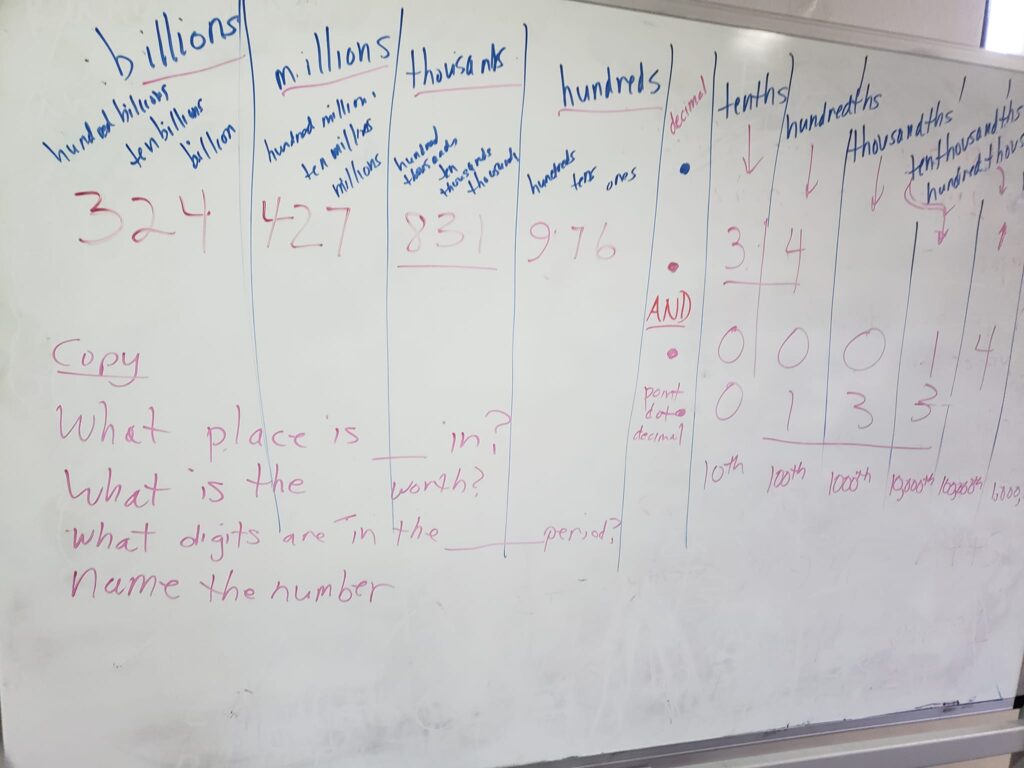 billions millions thousands hundreds decimal tenths hundredths thousandths tenthousandths
hundred billions ten billions billion hundred million ten millions millions hundred thousands ten thousands thousands hundreds tens ones • hundred thous
324 427 831 976 • 3 4
AND
• 0 0 0 1 4
point dot decimal 0 1 3 3
10th 100th 1000th 10,000th 100,000th
Copy
What place is __ in?
What is the worth?
What digits are in the ____ period?
Name the number